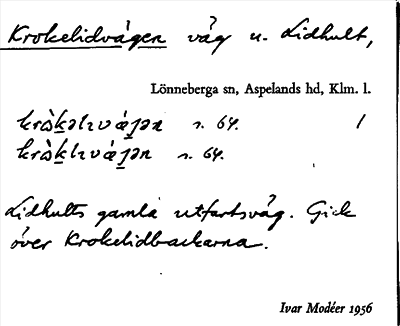 Krokelidvägen väg u. Lidhult,
Lönneberga sn, Aspelands hd, Klm. l.
s. 64. 1
s. 64.
Lidhults gamla utfartsväg. Gick
över Krokelidbackarna.
Ivar Modéer 1956